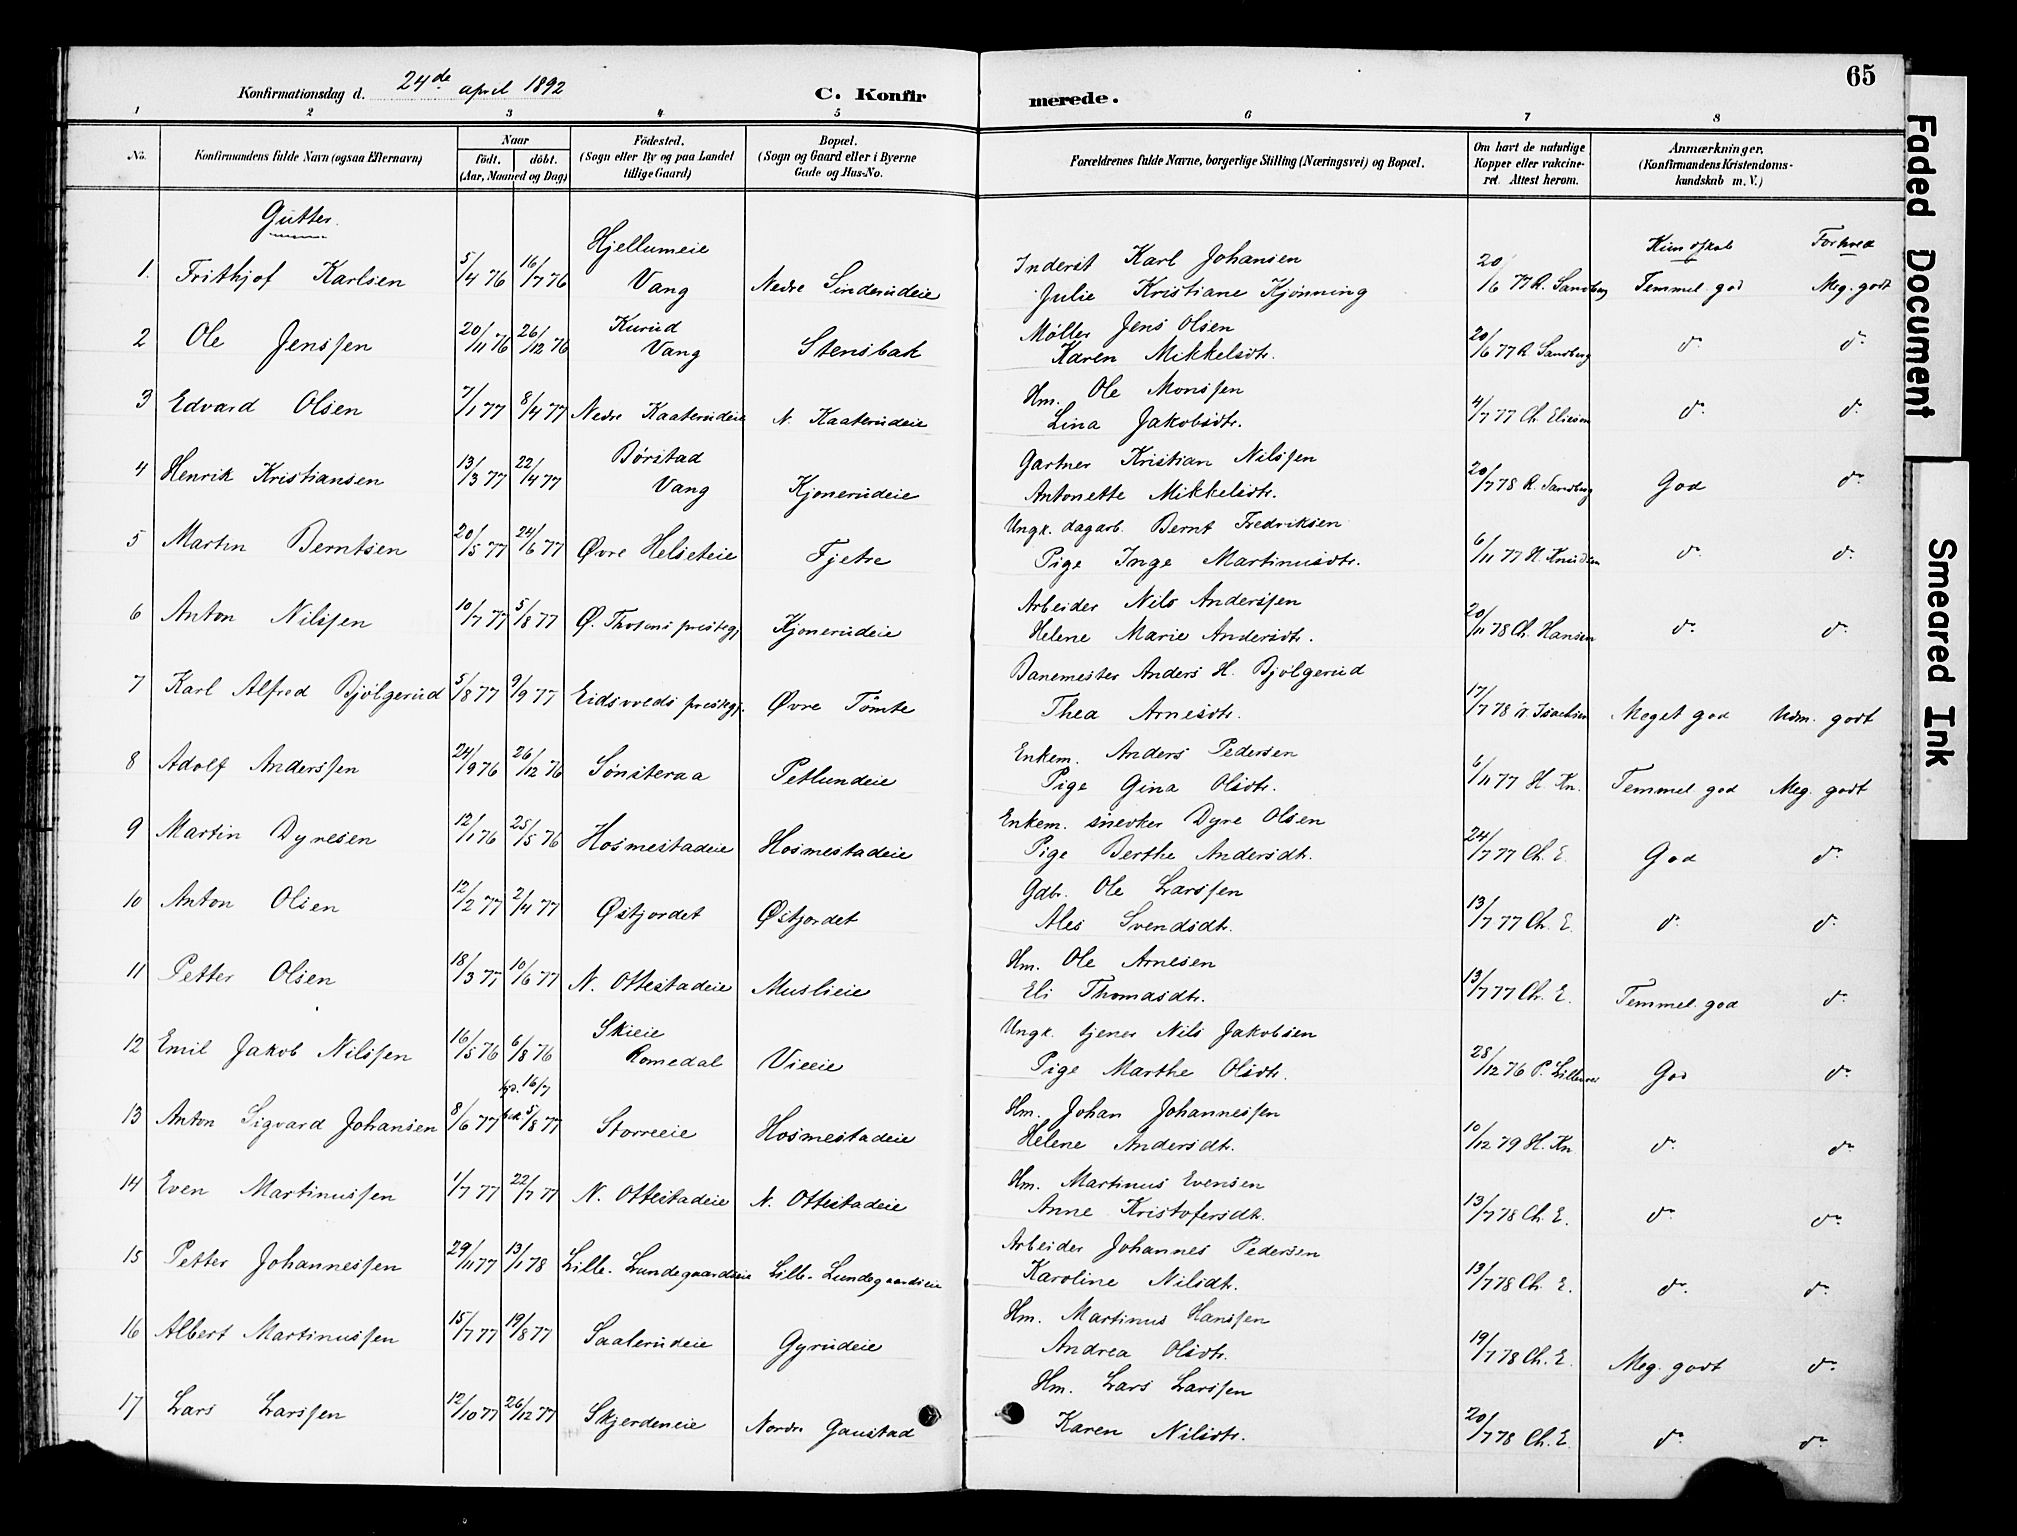 65
Konfirmationsdag d. 24de april 1892
C. Konfirmerede.
1 2 3 4 5 6 7 8
No. Konfirmandens fulde Navn (ogsaa Efternavn) Naar födt. döbt. (Aar, Maaned og Dag) Födested. (Sogn eller By og paa Landet tillige Gaard) Bopæl. (Sogn og Gaard eller i Byerne Gade og Hus-No. Forældrenes fulde Navne, borgerlige Stilling (Næringsvei) og Bopæl. Om havt de naturlige Kopper eller vakcineret. Attest herom. Anmærkninger. (Konfirmandens Kristendomskundskab m. V.)
Gutter. Kundskab Forhold
1. Frithjof Karlsen 5/4 76 16/7 76 Hjellumeie Vang Nedre Sinderudeie Inderst Karl Johansen Julie Kristiane Kjønning 20/6 77 R. Sandberg Temmel. god Meg. godt
2 Ole Jenssen 20/11 76 26/12 76 Kurud Vang Stensbak Møller Jens Olsen Karen Mikkelsdtr. 20/6 77 R. Sandberg do. do.
3 Edvard Olsen 7/1 77 8/4 77 Nedre Kaaterudeie N. Kaaterudeie Hm. Ole Monssen Lina Jakobsdtr. 4/7 77 Ch. Eliesen do. do.
4 Henrik Kristiansen 13/3 77 22/4 77 Børstad Vang Kjonerudeie Gartner Kristian Nilssen Antonette Mikkelsdtr. 20/7 78 R. Sandberg God do
5 Martin Berntsen 20/5 77 24/6 77 Øvre Helseteie Fjetre Ungk. dagarb. Bernt Fredriksen Pige Inge Martinusdtr. 6/11 77 H. Knudsen do do
6 Anton Nilssen 10/7 77 5/8 77 Ø. Thotens prestegj. Kjonerudeie Arbeider Nils Anderssen Helene Marie Andersdtr. 20/11 78 Ch. Hansen do do.
7 Karl Alfred Bjölgerud 5/8 77 9/9 77 Eidsvolds prestegj. Øvre Tömte Banemester Anders H. Bjölgerud Thea Arnesdtr. 17/7 78 Isachsen Meget god Udm. godt
8 Adolf Anderssen 24/9 76 26/12 76 Sønsteraa Petlundeie Enkem. Anders Pedersen Pige Gina Olsdtr. 6/11 77 H. Kn. Temmel god Meg. godt
9 Martin Dyresen 12/1 76 25/5 76 Hosmestadeie Hosmestadeie Enkem. snedker Dyre Olsen Pige Berthe Andersdtr. 24/7 77 Ch. E. God do
10 Anton Olsen 12/2 77 2/4 77 Østjordet Østjordet Gdbr. Ole Larssen Ales Svendsdtr. 13/7 77 Ch. E. do do.
11 Petter Olsen 18/3 77 10/6 77 N. Ottestadeie Muslieie Hm. Ole Arnesen Eli Thomasdtr. 13/7 77 Ch. E. Temmel. god do
12 Emil Jakob Nilssen 16/5 76 6/8 76 Skieie Romedal Vieeie Ungk. tjener Nils Jakobsen Pige Marthe Olsdtr. 28/12 76 God do
13 Anton Sigvard Johansen 8/6 77 16/7 5/8 77 Storreeie Hosmestadeie Hm. Johan Johannessen Helene Andersdtr. 10/12 79 H. Kn do. do
14 Even Martinussen 1/7 77 22/7 77 N. Ottestadeie N. Ottestadeie Hm. Martinus Evensen Anne Kristofersdtr. 13/7 78 Ch. E. do do
15 Petter Johannessen 29/11 77 13/1 78 Lille-Lundegaardseie Lille-Lundegaardseie Arbeider Johannes Pedersen Karoline Nilsdtr. 13/7 78 Ch. E. do. do.
16 Albert Martinussen 15/7 77 19/8 77 Saalerudeie Gyrudeie Hm. Martinus Hanssen Andrea Olsdtr. 19/7 78 Ch. E. Meg. godt do
17 Lars Larssen 12/10 77 26/12 77 Skjerdeneie Nordre Gaustad Hm. Lars Larssen Karen Nilsdtr. 20/7 78 Ch. E. do. do
Faded Document
Smeared Ink